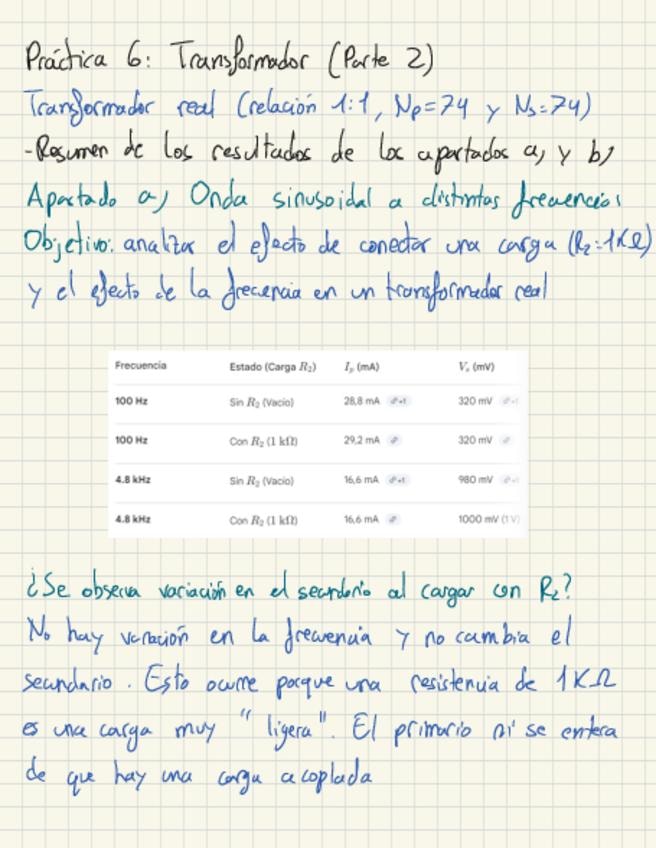 Práctica 6: Transformador (Parte 2)
Transformador real (relación 1:1, Np=74 y Ns=74)
-Resumen de los resultados de los apartados a) y b)
Apartado a) Onda sinusoidal a distintas frecuencias
Objetivo: analizar el efecto de conectar una carga (R₂=1KΩ)
y el efecto de la frecuencia en un transformador real
Frecuencia Estado (Carga R₂) Iₚ (mA) Vₛ (mV)
100 Hz Sin R₂ (Vacío) 28,8 mA +1 320 mV +1
100 Hz Con R₂ (1 kΩ) 29,2 mA 320 mV
4.8 kHz Sin R₂ (Vacío) 16,6 mA +1 980 mV +1
4.8 kHz Con R₂ (1 kΩ) 16,6 mA 1000 mV (1 V)
¿Se observa variación en el secundario al cargar con R₂?
No hay variación en la frecuencia y no cambia el
secundario. Esto ocurre porque una resistencia de 1KΩ
es una carga muy "ligera". El primario ni se entera
de que hay una carga acoplada